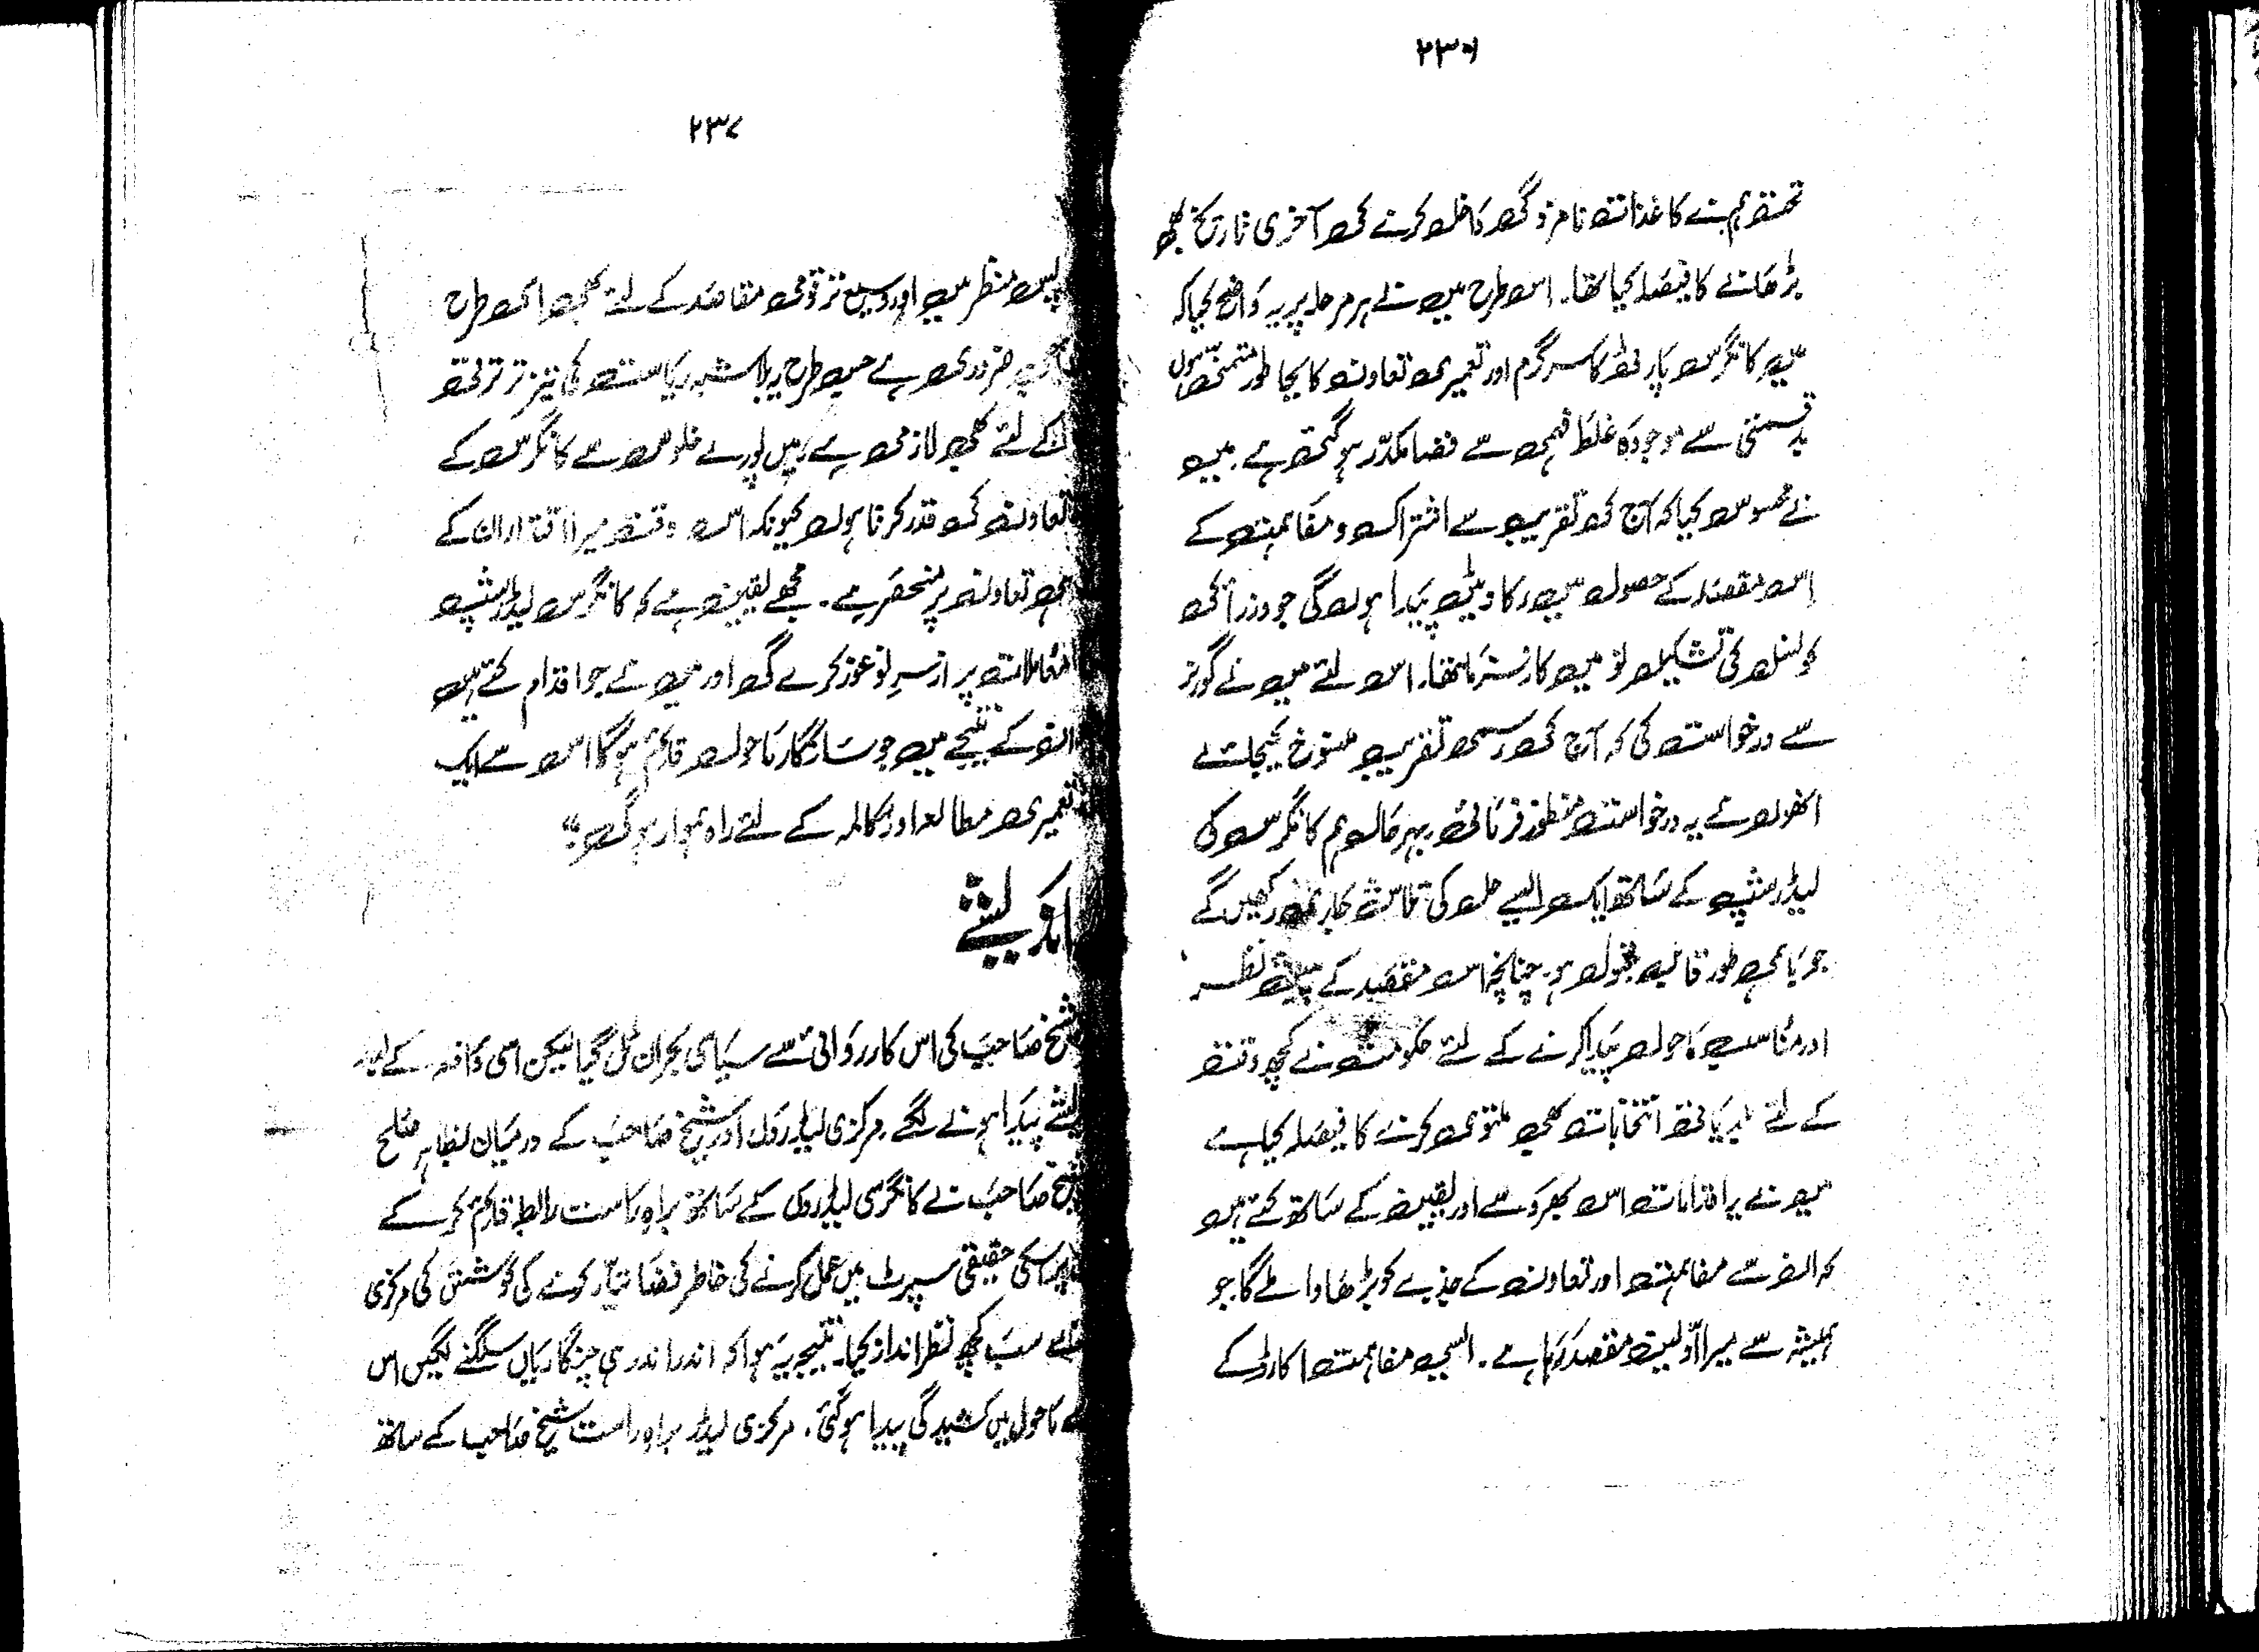 ۲۳۶
تحت ہم نے کاغذات نامزدگی داخل کرنے کی آخری تاریخ بھی
بڑھانے کا فیصلہ کیا تھا۔ اس طرح میں نے ہر مرحلہ پر یہ واضح کیا کہ
میں کانگرس پارٹی کا سرگرم اور تعمیری تعاون کا بجا طور متمنی ہوں
بدقسمتی سے موجودہ غلط فہمی سے فضا مکدّر ہو گئی ہے۔ میں
نے محسوس کیا کہ آج کی تقریب سے اشتراک و مفاہمت کے
اس مقصد کے حصول میں رکاوٹیں پیدا ہوں گی جو وزرا کی
کونسل کی تشکیل نو میں کارفرما تھا۔ اس لئے میں نے گورنر
سے درخواست کی کہ آج کی رسمی تقریب منسوخ کیجائے
انھوں نے یہ درخواست منظور فرمائی۔ بہر حال ہم کانگرس کی
لیڈرشپ کے ساتھ ایک ایسے حل کی تلاش جاری رکھیں گے
جو باہمی طور قابل قبول ہو۔ چنانچہ اس مقصد کے پیش نظر
اور مناسب ماحول پیدا کرنے کے لئے حکومت نے کچھ وقت
کے لئے بلدیاتی انتخابات بھی ملتوی کرنے کا فیصلہ کیا ہے
میں نے یہ اقدامات اس بھروسے اور یقین کے ساتھ کئے ہیں
کہ ان سے مفاہمت اور تعاون کے جذبے کو بڑھاوا ملے گا جو
ہمیشہ سے میرا اوّلین مقصد رہا ہے۔ ایسی مفاہمت اکارڈ کے
۲۳۷
پس منظر میں اور وسیع تر قومی مقاصد کے لئے بھی اسی طرح
ضروری ہے جس طرح یہ بلاشبہ ریاست کی تیز تر ترقی
کے لئے بھی لازمی ہے۔ میں پورے خلوص سے کانگرس کے
تعاون کی قدر کرتا ہوں کیونکہ اس وقت میرا اقتدار ان کے
ہی تعاون پر منحصر ہے۔ مجھے یقین ہے کہ کانگرس لیڈرشپ
معاملات پر از سرِ نو غور کرے گی اور میں نے جو اقدام کئے ہیں
ان کے نتیجے میں جو سازگار ماحول قائم ہوگا اس سے ایک
تعمیری مطالعہ اور مکالمہ کے لئے راہ ہموار ہوگی۔“
اندیشے
شیخ صاحب کی اس کارروائی سے سیاسی بحران ٹل گیا لیکن اسی واقعہ کے بعد
پیدا ہونے لگے۔ مرکزی لیڈروں اور شیخ صاحب کے درمیان بظاہر صلح
شیخ صاحب نے کانگرسی لیڈروں کے ساتھ براہ راست رابطہ قائم کر کے
اسکی حقیقی سپرٹ میں عمل کرنے کی خاطر فضا تیار کرنے کی کوشش کی مرکزی
نے سب کچھ نظر انداز کیا۔ نتیجہ یہ ہوا کہ اندر اندر ہی چنگاریاں سلگنے لگیں اس
سے ماحول میں کشیدگی پیدا ہو گئی۔ مرکزی لیڈر براہ راست شیخ صاحب کے ساتھ